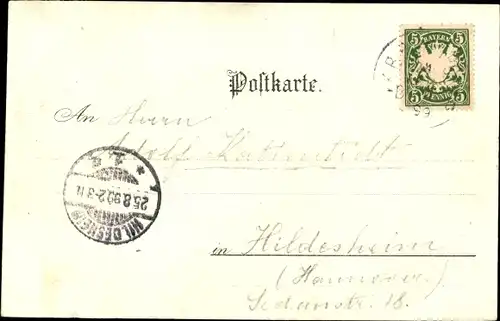 5 BAYERN 5
5 PFENNIG 5
Postkarte.
An Herrn
Adolf
HILDESHEIM
1. c
25.8.99. 2-3 N.
in Hildesheim
(Hannover.)
Sedanstr. 18.